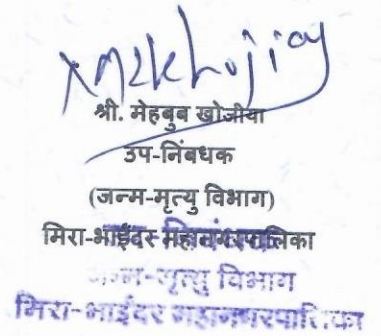 श्री. मेहबुब खोजीया
उप-निंबधक
(जन्म-मृत्यु विभाग)
मिरा-भाईंदर महानगरपालिका
जन्म-मृत्यु विभाग
मिरा-भाईंदर महानगरपालिका